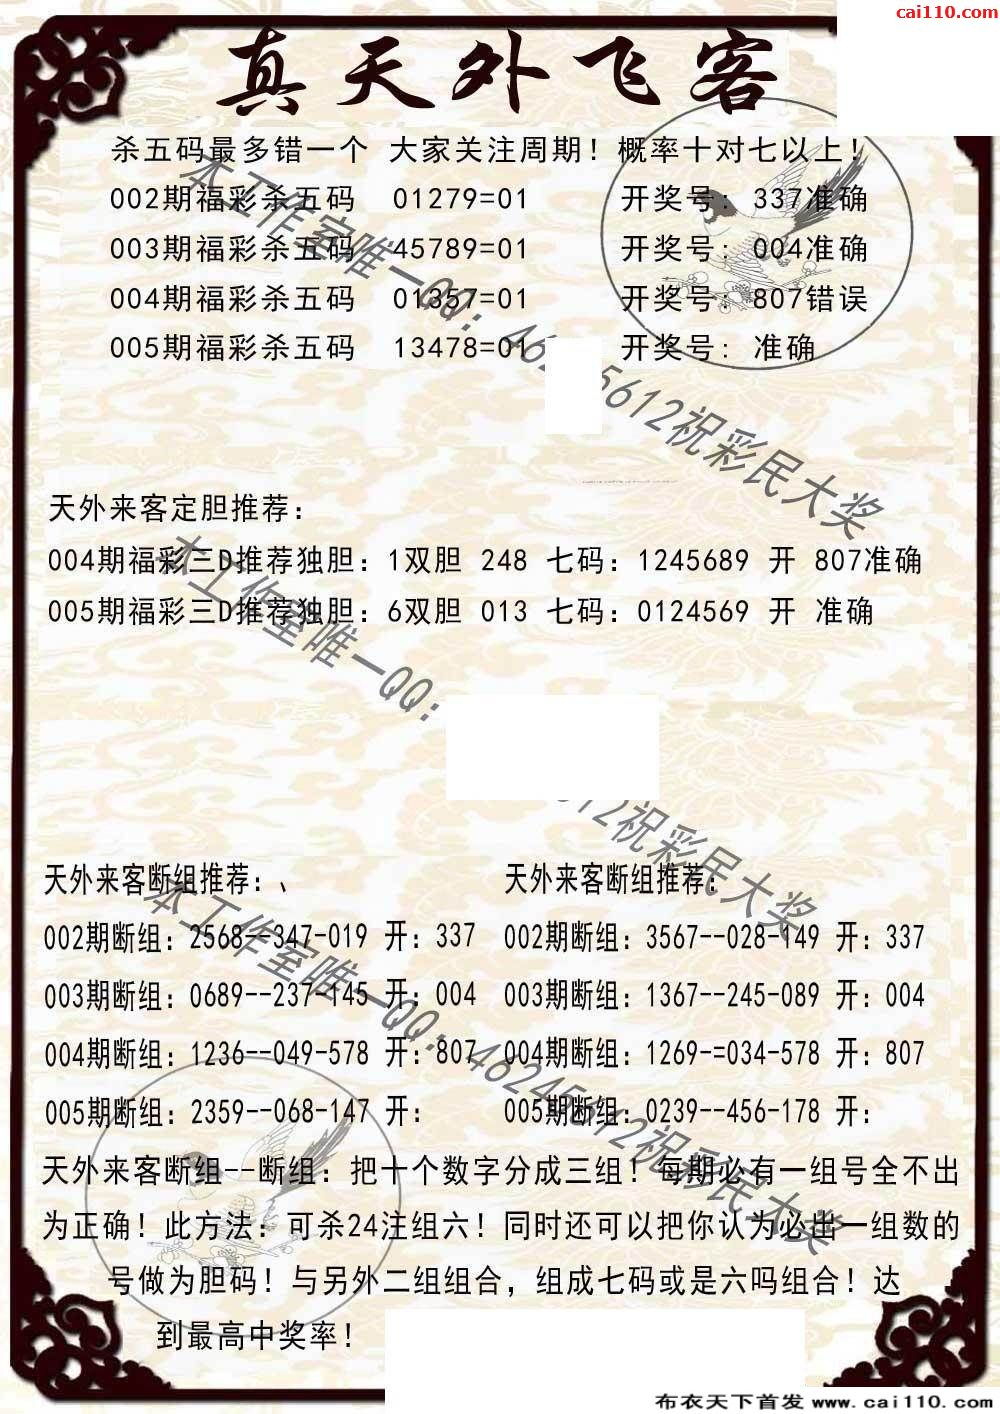 cai110.com
真天外飞客
杀五码最多错一个 大家关注周期！概率十对七以上！
002期福彩杀五码 01279=01 开奖号：337准确
003期福彩杀五码 45789=01 开奖号：004准确
004期福彩杀五码 01357=01 开奖号：807错误
005期福彩杀五码 13478=01 开奖号： 准确
本工作室唯一QQ：46 5612祝彩民大奖
天外来客定胆推荐：
004期福彩三D推荐独胆：1双胆 248 七码：1245689 开 807准确
005期福彩三D推荐独胆：6双胆 013 七码：0124569 开 准确
本工作室唯一QQ： 612祝彩民大奖
天外来客断组推荐：、 天外来客断组推荐：
002期断组：2568--347-019 开：337 002期断组：3567--028-149 开：337
003期断组：0689--237-145 开：004 003期断组：1367--245-089 开：004
004期断组：1236--049-578 开：807 004期断组：1269-=034-578 开：807
005期断组：2359--068-147 开： 005期断组：0239--456-178 开：
本工作室唯一QQ：46245612祝彩民大奖
天外来客断组--断组：把十个数字分成三组！每期必有一组号全不出
为正确！此方法：可杀24注组六！同时还可以把你认为必出一组数的
号做为胆码！与另外二组组合，组成七码或是六吗组合！达
到最高中奖率！
布衣天下首发 www.cai110.com